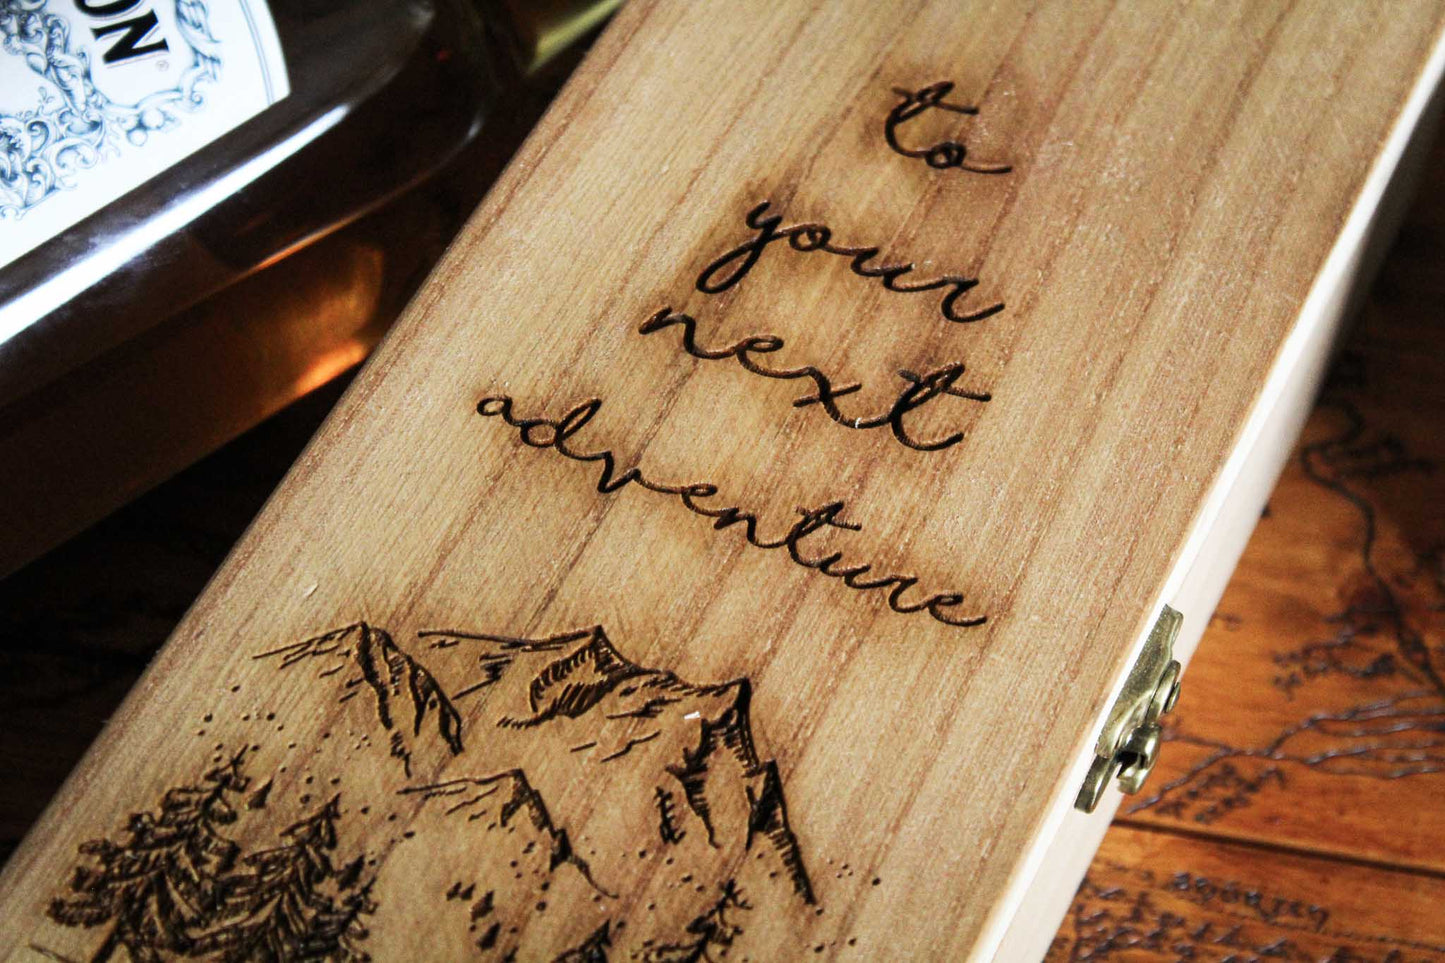 to
your
next
adventure
ON®